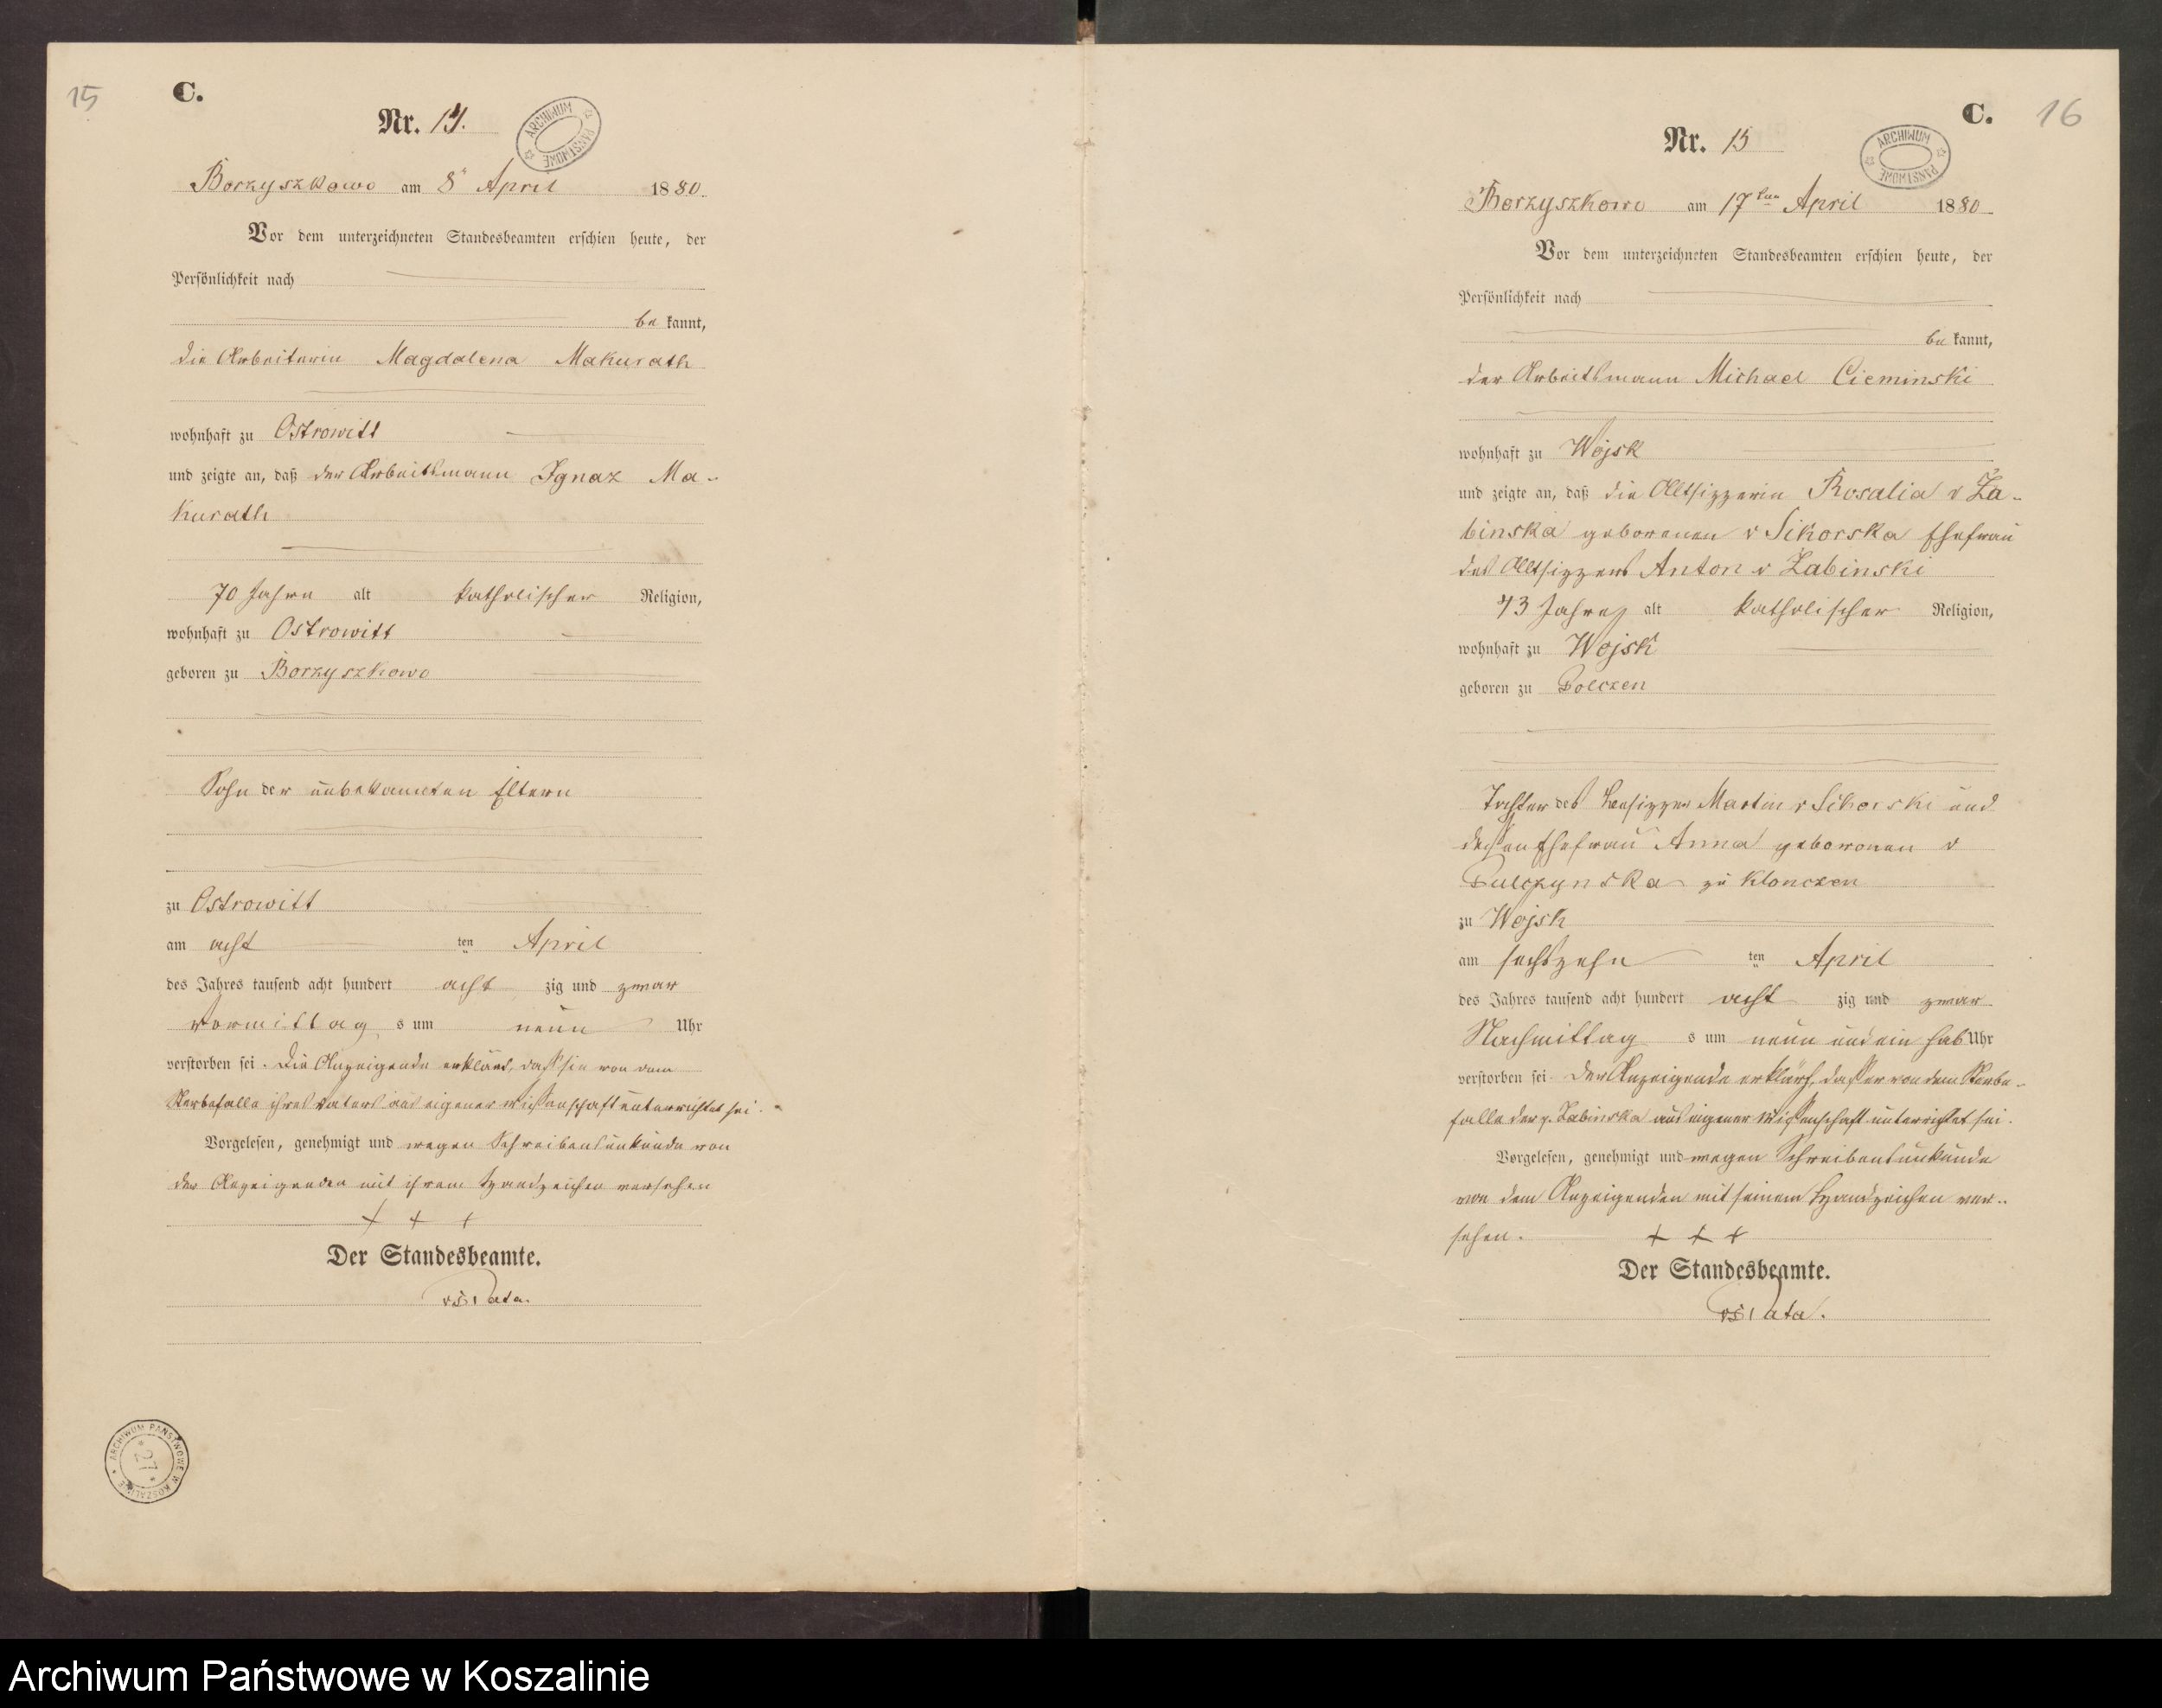 15
C.
Nr. 14.
ARCHIWUM PAŃSTWOWE
Borzyszkowo am 8 April 1880.
Vor dem unterzeichneten Standesbeamten erschien heute, der
Persönlichkeit nach
be kannt,
die Arbeiterin Magdalena Makurath
wohnhaft zu Ostrowitt
und zeigte an, daß der Arbeitsmann Ignaz Ma-
kurath
70 Jahre alt katholischer Religion,
wohnhaft zu Ostrowitt
geboren zu Borzyszkowo
Sohn der unbekannten Eltern
zu Ostrowitt
am acht ten April
des Jahres tausend acht hundert acht zig und zwar
Vormittag s um neun Uhr
verstorben sei. Die Anzeigende erklärt, daß sie von dem
Sterbefalle ihres Vaters aus eigener Wissenschaft unterrichtet sei.
Vorgelesen, genehmigt und wegen Schreibensunkunde von
der Anzeigenden mit ihrem Handzeichen versehen
+ + +
Der Standesbeamte.
ARCHIWUM PAŃSTWOWE W KOSZALINIE
27
C. 16
Nr. 15
ARCHIWUM PAŃSTWOWE
Borzyszkowo am 17ten April 1880
Vor dem unterzeichneten Standesbeamten erschien heute, der
Persönlichkeit nach
be kannt,
der Arbeitsmann Michael Cieminski
wohnhaft zu Wojsk
und zeigte an, daß die Altsizzerin Rosalia v Za-
binska geborenen v Sikorska Ehefrau
des Altsizzers Anton v Zabinski
73 Jahre alt katholischer Religion,
wohnhaft zu Wojsk
geboren zu Polczen
Tochter des Besizzer Martin v Sikorski und
dessen Ehefrau Anna geborenen v
Pulczynska zu Klonczen
zu Wojsk
am sechszehn ten April
des Jahres tausend acht hundert acht zig und zwar
Nachmittag s um neun und ein halb Uhr
verstorben sei. Der Anzeigende erklärt, daß er von dem Sterbe-
falle der p. Zabinska aus eigener Wissenschaft unterrichtet sei.
Vorgelesen, genehmigt und wegen Schreibensunkunde
von dem Anzeigenden mit seinem Handzeichen ver-
sehen. + + +
Der Standesbeamte.
Archiwum Państwowe w Koszalinie